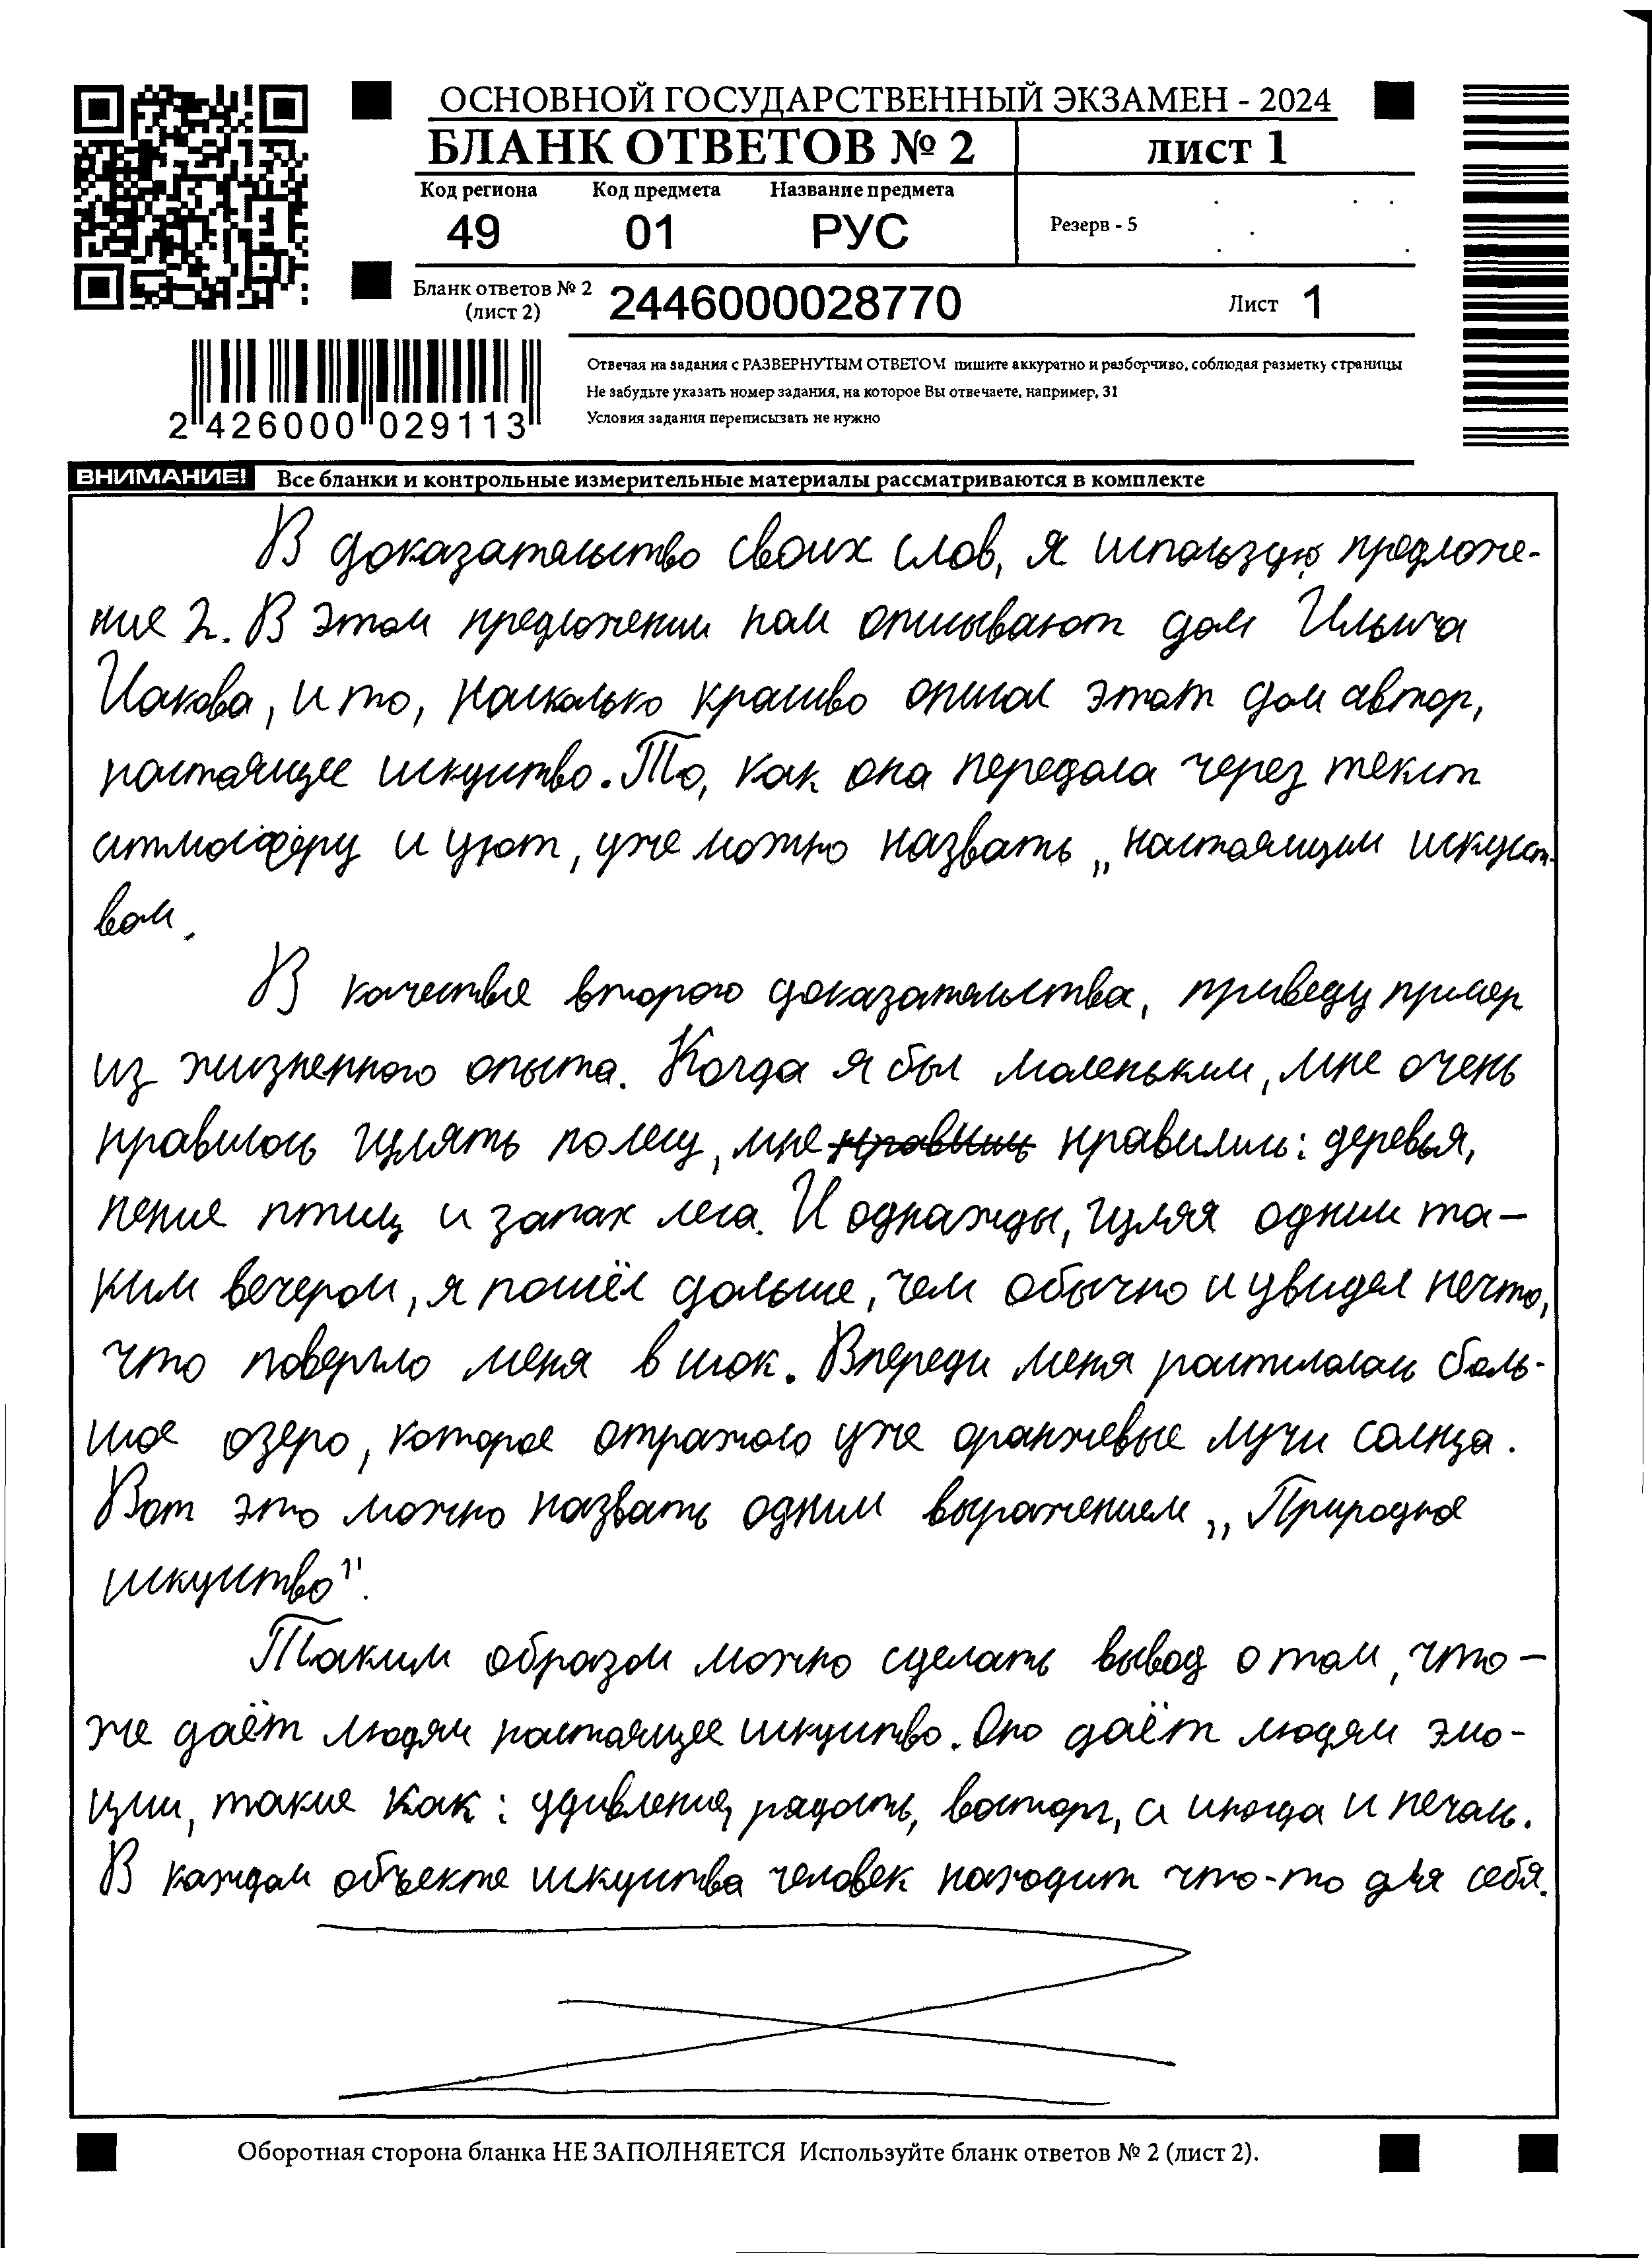 ОСНОВНОЙ ГОСУДАРСТВЕННЫЙ ЭКЗАМЕН - 2024
БЛАНК ОТВЕТОВ № 2
ЛИСТ 1
Код региона Код предмета Название предмета
49 01 РУС
Резерв - 5
Бланк ответов № 2
(лист 2)
2446000028770
Лист 1
2 426000 029113
Отвечая на задания с РАЗВЕРНУТЫМ ОТВЕТОМ пишите аккуратно и разборчиво, соблюдая разметку страницы
Не забудьте указать номер задания, на которое Вы отвечаете, например, 31
Условия задания переписызать не нужно
ВНИМАНИЕ! Все бланки и контрольные измерительные материалы рассматриваются в комплекте
В доказательство своих слов, я использую предложе-
ние 2. В этом предложении нам описывают дом Ильича
Иакова, и то, насколько красиво описал этот дом автор,
настоящее искуство. То, как она передала через текст
атмосферу и уют, уже можно назвать „настоящим искуст-
вом.
В качестве второго доказательства, приведу пример
из жизненного опыта. Когда я был маленьким, мне очень
нравилось гулять по лесу, мне нравились: деревья,
пение птиц и запах леса. И однажды, гуляя одним та-
ким вечером, я пошёл дальше, чем обычно и увидел нечто,
что повергло меня в шок. Впереди меня растилалось боль-
шое озеро, которое отражало уже оранжевые лучи солнца.
Вот это можно назвать одним выражением „Природное
искуство".
Таким образом можно сделать вывод о том, что-
же даёт людям настоящее искуство. Оно даёт людям эмо-
ции, такие как: удивление, радость, восторг, а иногда и печаль.
В каждом объекте искуства человек находит что-то для себя.
Оборотная сторона бланка НЕ ЗАПОЛНЯЕТСЯ Используйте бланк ответов № 2 (лист 2).